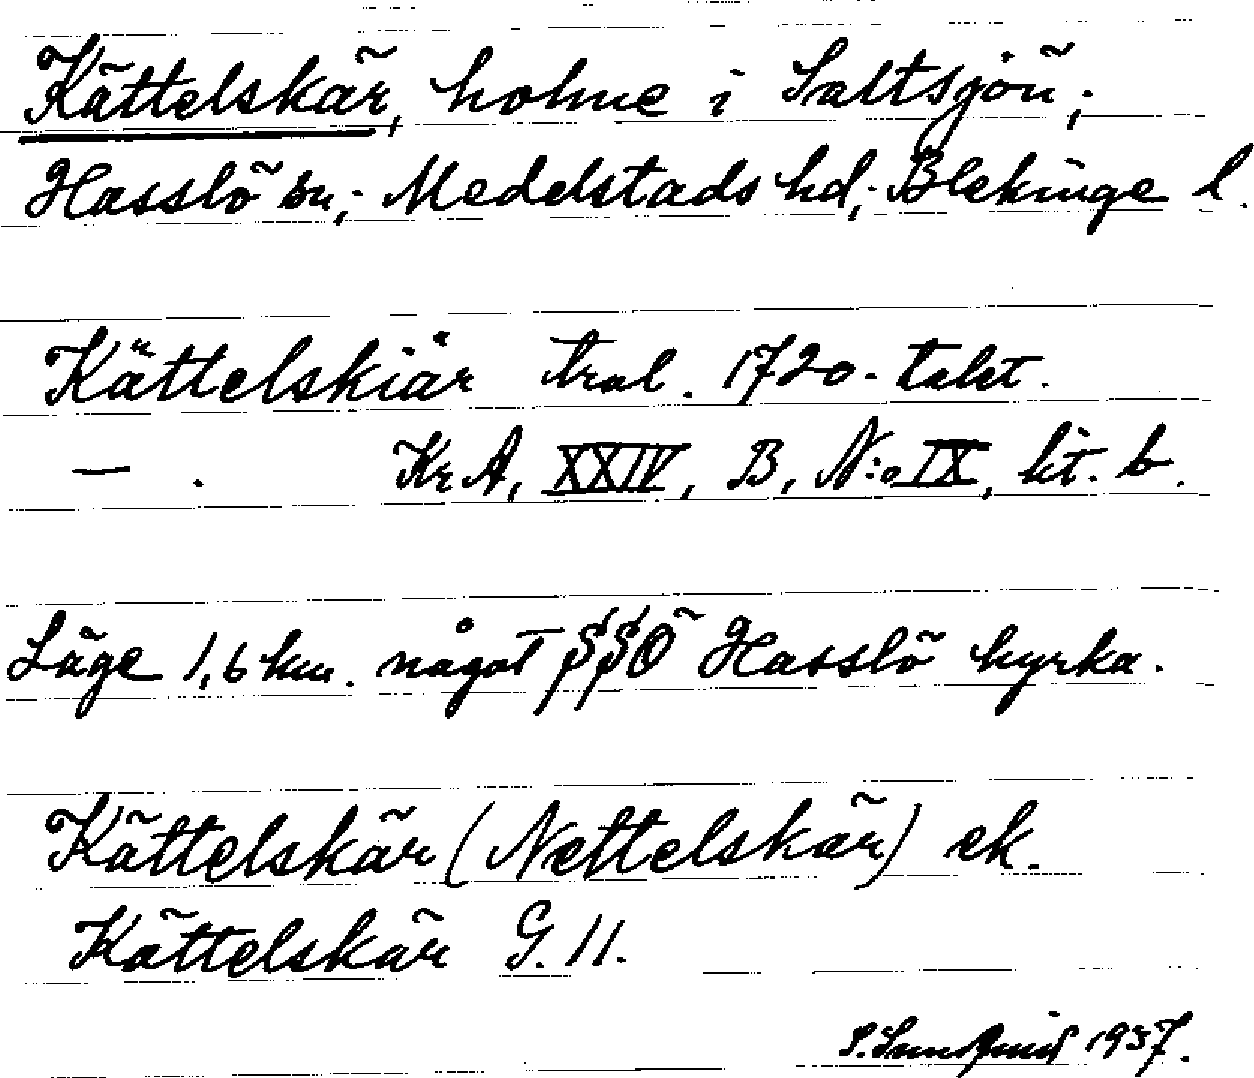 Kättelskär, holme i Saltsjön,
Hasslö sn, Medelstads hd, Blekinge l.
Kättelskiär trol. 1720-talet.
— . KrA, XXIV, B, N:o IX, lit. b.
Läge 1,6 km. något SSÖ Hasslö kyrka.
Kättelskär (Nettelskär) ek.
Kättelskär G. 11.
1937.